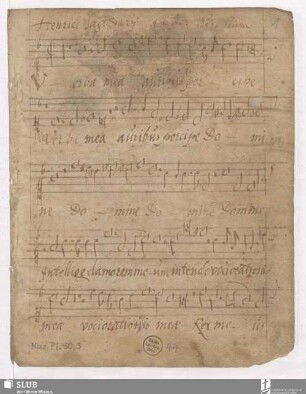 Verba mea auribus per cipe
Verba mea auribus percipe Do - mi
ne Do - mine Do - mine Domine
Intellige clamorem me - um intende voci orationis
mea voci orationis mea Rex me - us
Mus. Pi. 50, 3
44
SLUB
Wir führen Wissen.